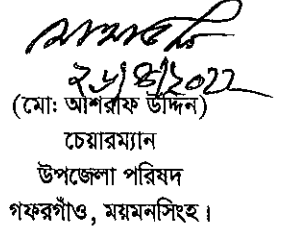 ২৮/৪/২০২২
(মো: আশরাফ উদ্দিন)
চেয়ারম্যান
উপজেলা পরিষদ
গফরগাঁও, ময়মনসিংহ।